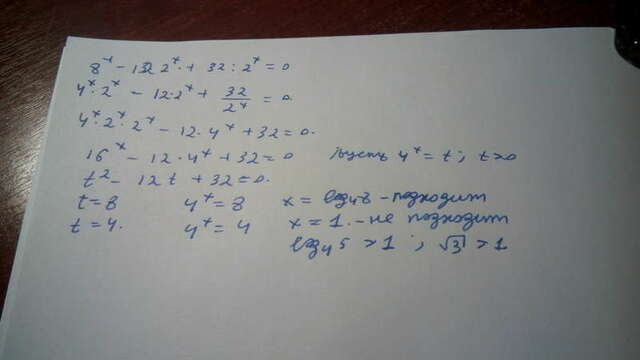 8^x - 12 2^x + 32 : 2^x = 0
4^x · 2^x - 12 · 2^x + 32/2^x = 0.
4^x · 2^x · 2^x - 12 · 4^x + 32 = 0.
16^x - 12 · 4^x + 32 = 0 Пусть 4^x = t ; t > 0
t^2 - 12t + 32 = 0.
t = 8 4^x = 8 x = log₄8 - подходит
t = 4. 4^x = 4 x = 1. - не подходит
log₄5 > 1 ; √3 > 1